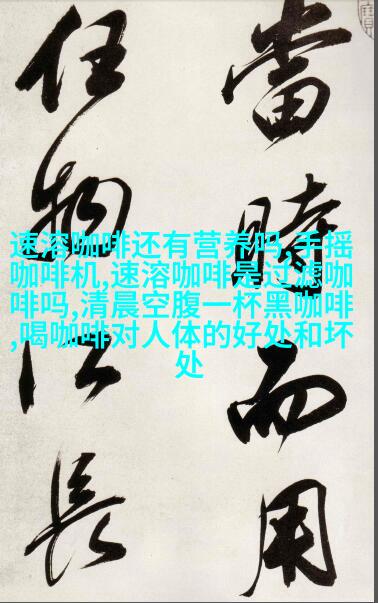 當時而用
任物以長
速溶咖啡还有营养吗,手摇
咖啡机,速溶咖啡是过滤咖
啡吗,清晨空腹一杯黑咖啡
,喝咖啡对人体的好处和坏
处